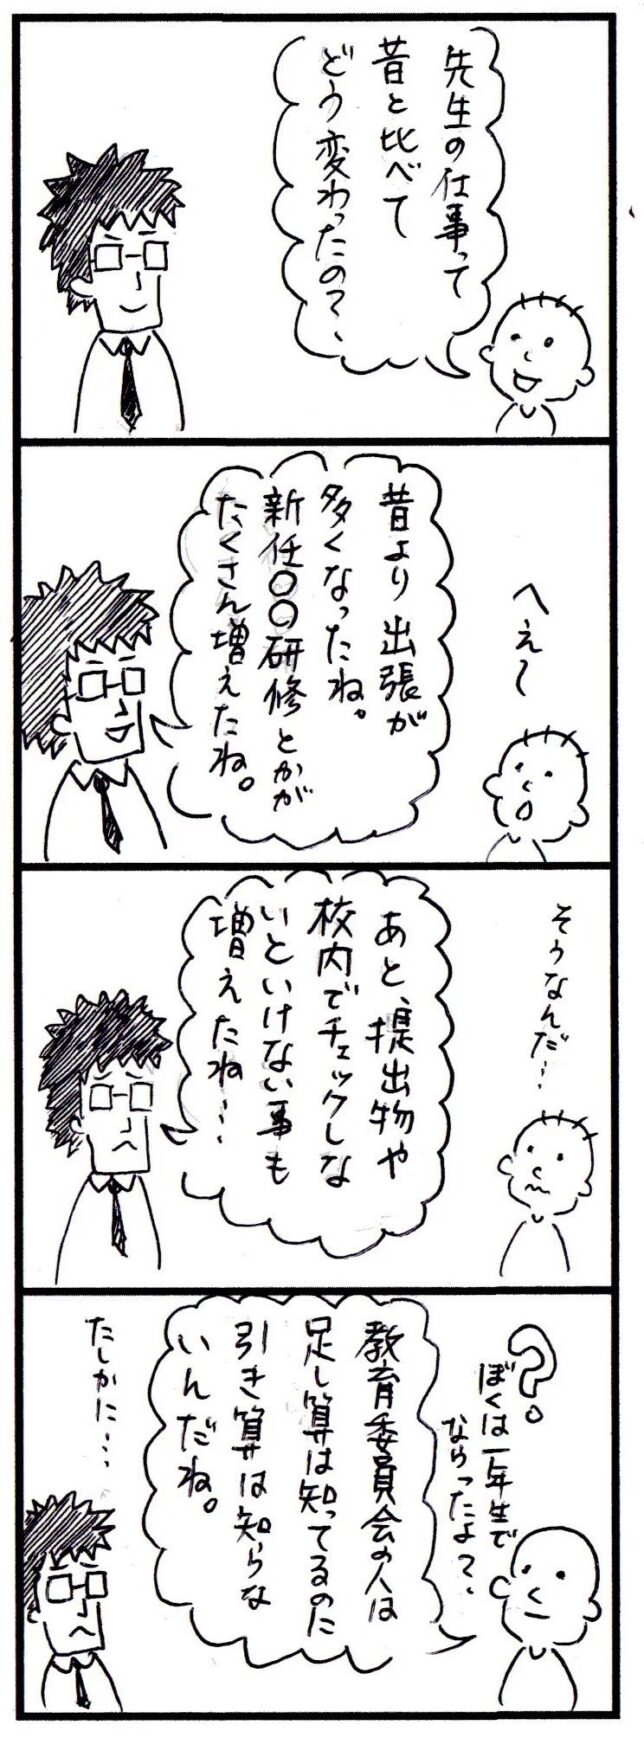 先生の仕事って
昔と比べて
どう変わったの?、
昔より出張が
多くなったね。
新任〇〇研修とかが
たくさん増えたね。
へぇ〜
あと、提出物や
校内でチェックしな
いといけない事も
増えたね…
そうなんだ…
教育委員会の人は
足し算は知ってるのに
引き算は知らな
いんだね。
?
ぼくは一年生で
ならったよ?、
たしかに…